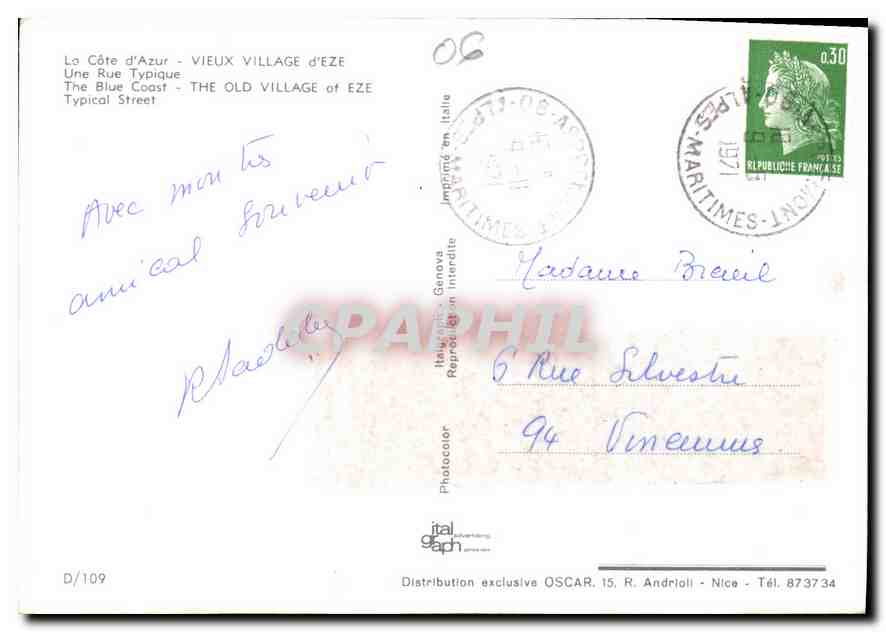 La Côte d'Azur - VIEUX VILLAGE d'EZE
Une Rue Typique
The Blue Coast - THE OLD VILLAGE of EZE
Typical Street
06
0,30
POSTES
REPUBLIQUE FRANÇAISE
06-ASPREMONT
ALPES-MARITIMES
1971
06-ASPREMONT
ALPES-MARITIMES
Avec mon très
amical souvenir
Imprimé en Italie
Italygraph - Genova
Reproduction Interdite
Photocolor
Madame Breuil
6 Rue Silvestre
94 Vincennes
CPAPHIL
ital
graph
advertising
D/109
Distribution exclusive OSCAR, 15, R. Andrioli - Nice - Tél. 873734